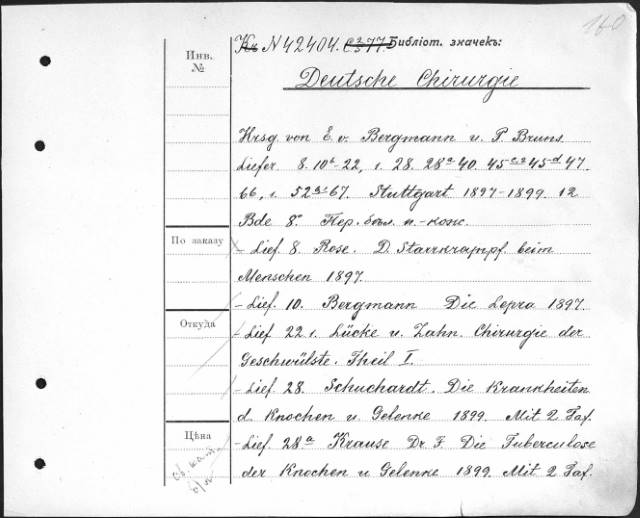 160
N 42404. Библіот. значекъ:
Инв.
№
Deutsche Chirurgie
Hrsg. von E. v. Bergmann u. P. Bruns.
Liefer. 8. 10ᵃ-22, 1. 28. 28ᵃ 40. 45 45ᵈ 47.
66, 1. 52 67. Stuttgart 1897-1899. 12
Bde 8°. Пер. бол. к.-кож.
По заказу
- Lief. 8. Rose. D. Starrkrampf. beim
Menschen 1897.
- Lief. 10. Bergmann Die Lepra 1897.
Откуда
- Lief 22 1. Lücke u. Zahn. Chirurgie der
Geschwülste. Theil I.
- Lief. 28. Schuchardt. Die Krankheiten
d. Knochen u. Gelenke 1899. Mit 2 Taf.
Цѣна
- Lief. 28ᵃ Krause Dr. F. Die Tuberculose
der Knochen u Gelenke 1899. Mit 2 Taf.